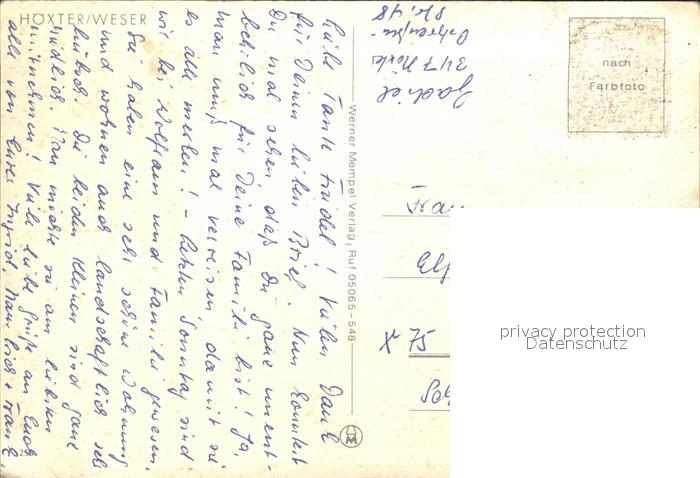 HÖXTER/WESER
Liebe Tante Friedel! Vielen Dank
für Deinen lieben Brief. Nun konntest
Du mal sehen, daß Du ganz unent-
behrlich für Deine Familie bist! Ja,
man muß mal verreisen, damit sie
es alle merken! - Letzten Sonntag sind
wir bei Wolfram und Familie gewesen.
Sie haben eine sehr schöne Wohnung
und wohnen auch landschaftlich sehr
hübsch. Die beiden Kleinen sind ganz
niedlich. Man möchte sie am liebsten
mitnehmen! Viele liebe Grüße an Euch
alle von Eurer Ingrid, +
Werner Mempel Verlag, Ruf 05065-548
347
Str. 48
nach
Farbfoto
75
privacy protection
Datenschutz